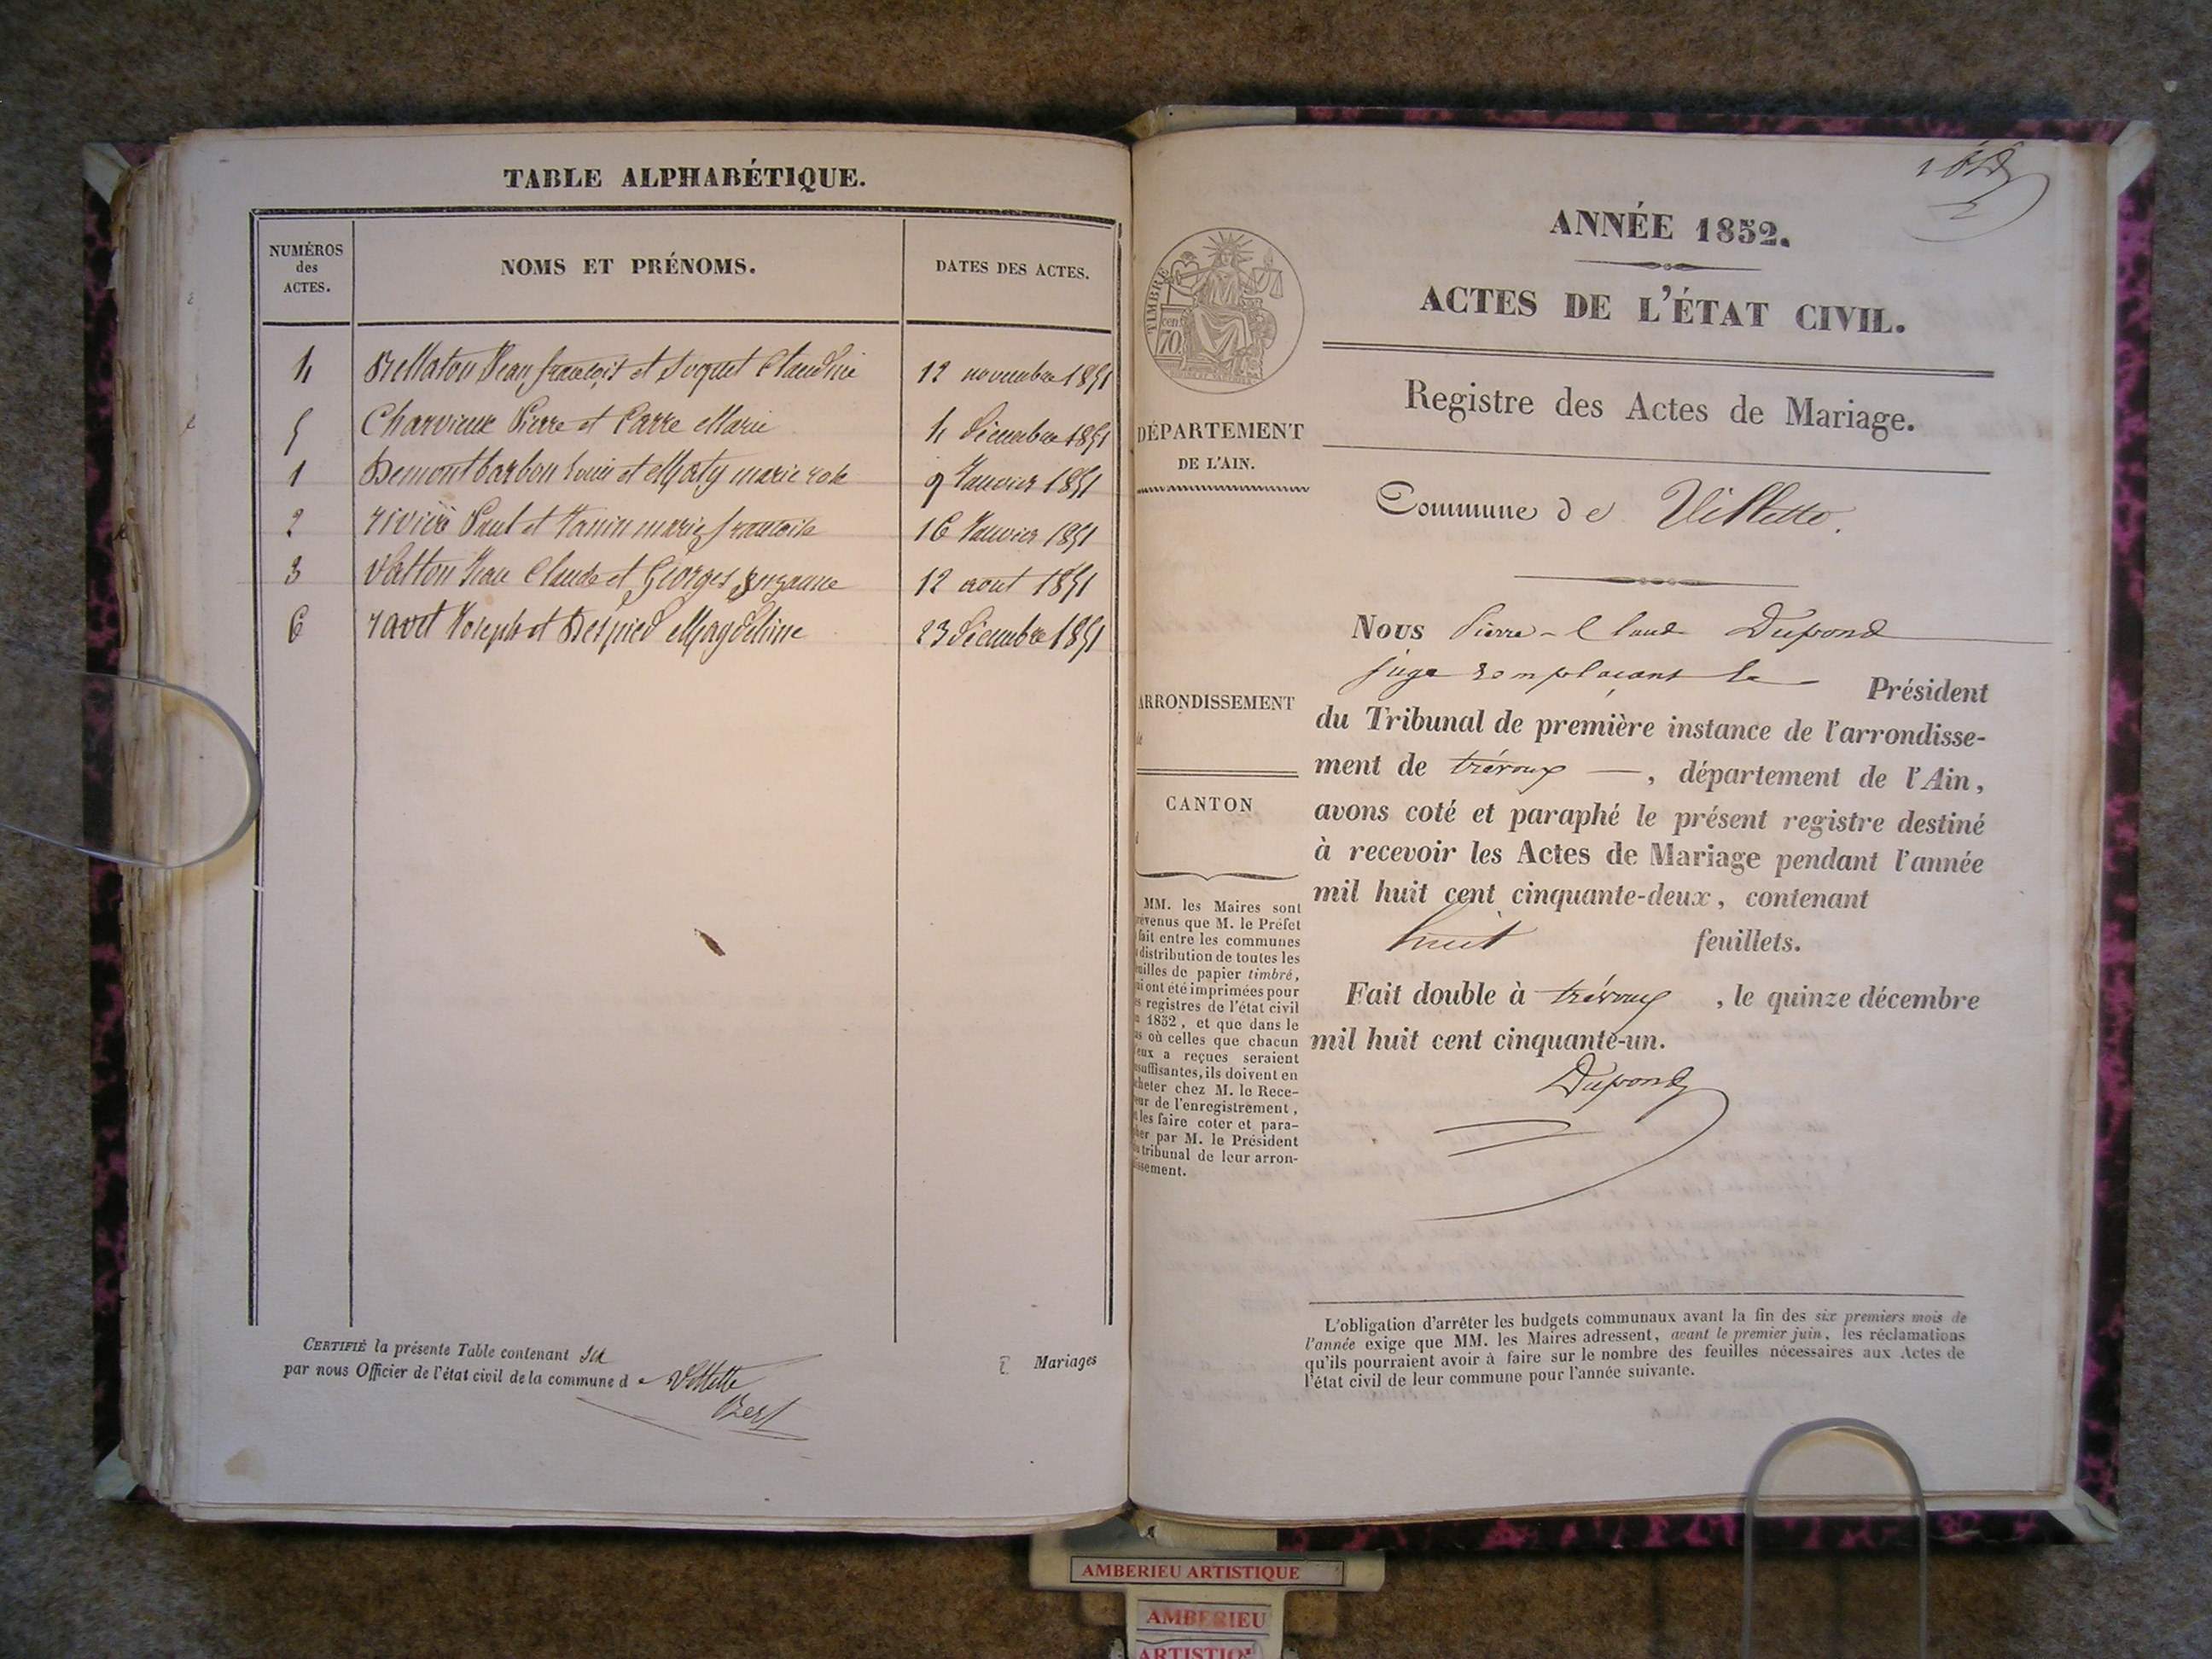 TABLE ALPHABÉTIQUE.
NUMÉROS
des
ACTES.
NOMS ET PRÉNOMS.
DATES DES ACTES.
4 Brellaton Jean françois et Suquet Claudine 12 novembre 1851
5 Charvieux Pierre et Carre Marie 4 Décembre 1851
1 Demontbarbon Louis et Marie rose 9 Janvier 1851
2 rivière Paul et Janin marie françoise 16 Janvier 1851
3 Vatton Jean Claude et Georges Suzanne 12 aout 1851
6 ravet Joseph et Despied Magdeleine 23 Décembre 1851
CERTIFIÉ la présente Table contenant six Mariages
par nous Officier de l'état civil de la commune de Villette
ANNÉE 1852.
ACTES DE L'ÉTAT CIVIL.
Registre des Actes de Mariage.
TIMBRE
70 cen.
DÉPARTEMENT
DE L'AIN.
Commune de Villette.
Nous Pierre-Claude Dupond
juge remplaçant le Président
du Tribunal de première instance de l'arrondisse-
ment de trévoux —, département de l'Ain,
avons coté et paraphé le présent registre destiné
à recevoir les Actes de Mariage pendant l'année
mil huit cent cinquante-deux, contenant
huit feuillets.
Fait double à trévoux, le quinze décembre
mil huit cent cinquante-un.
Dupond
ARRONDISSEMENT
CANTON
MM. les Maires sont
révenus que M. le Préfet
fait entre les communes
distribution de toutes les
euilles de papier timbré,
ui ont été imprimées pour
es registres de l'état civil
1852, et que dans le
as où celles que chacun
'eux a reçues seraient
nsuffisantes, ils doivent en
cheter chez M. le Rece-
eur de l'enregistrement,
les faire coter et para-
her par M. le Président
u tribunal de leur arron-
issement.
L'obligation d'arrêter les budgets communaux avant la fin des six premiers mois de
l'année exige que MM. les Maires adressent, avant le premier juin, les réclamations
qu'ils pourraient avoir à faire sur le nombre des feuilles nécessaires aux Actes de
l'état civil de leur commune pour l'année suivante.
AMBERIEU ARTISTIQUE
AMBERIEU